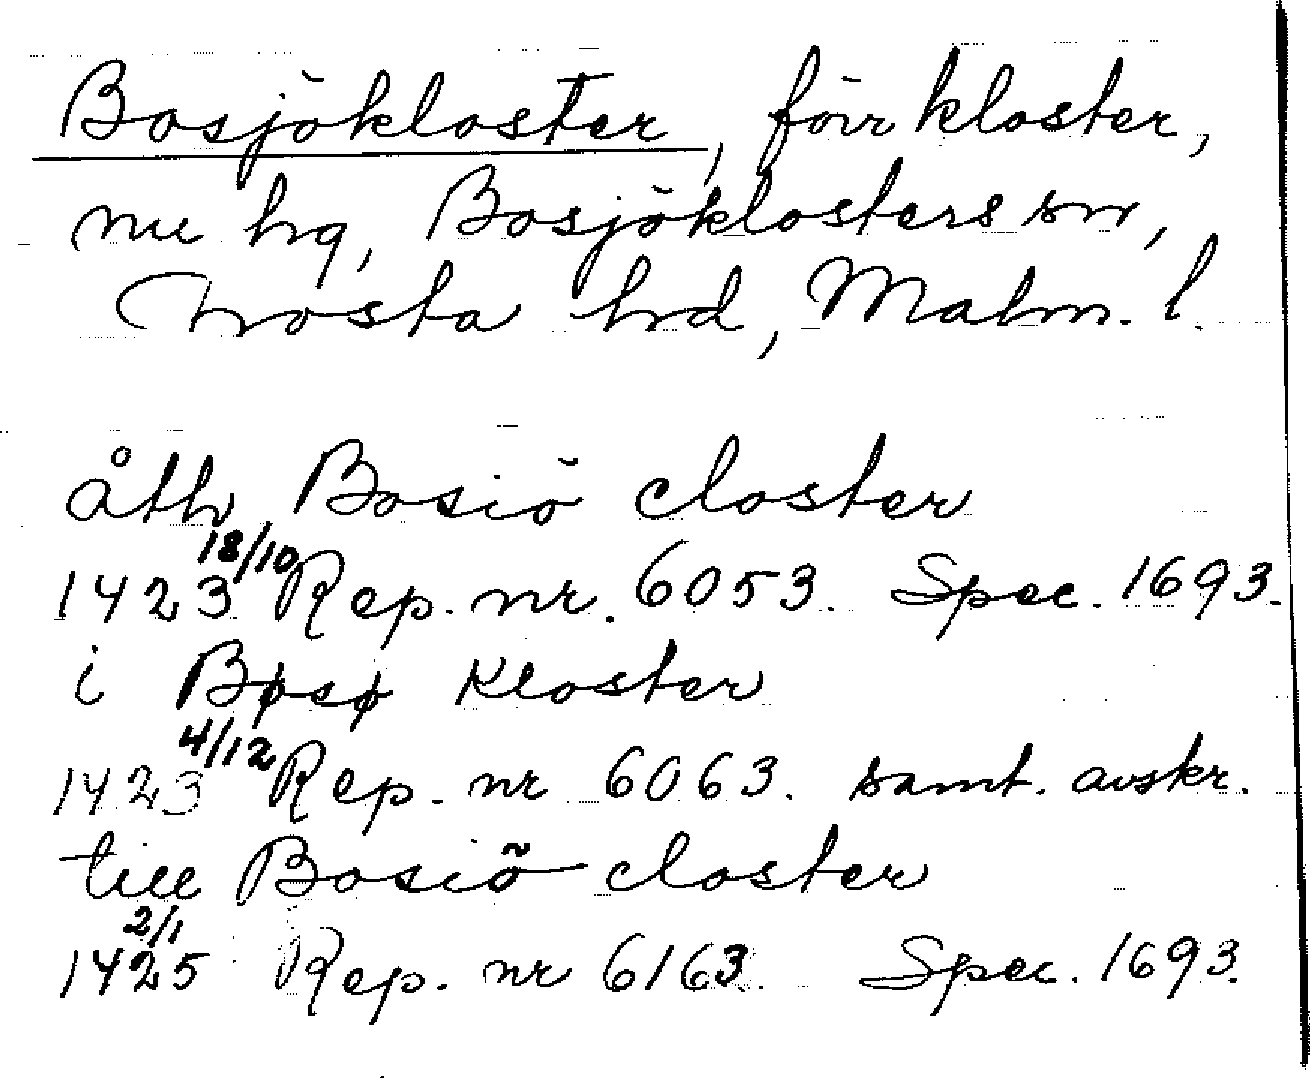 Bosjökloster, förr kloster,
nu hg, Bosjöklosters sn,
Frosta hd, Malm. l.
åth Bosiö closter
1423 18/10 Rep. nr. 6053. Spec. 1693.
i Bøsø Kloster
1423 4/12 Rep. nr 6063. samt. avskr.
till Bosiö closter
1425 2/1 Rep. nr 6163. Spec. 1693.